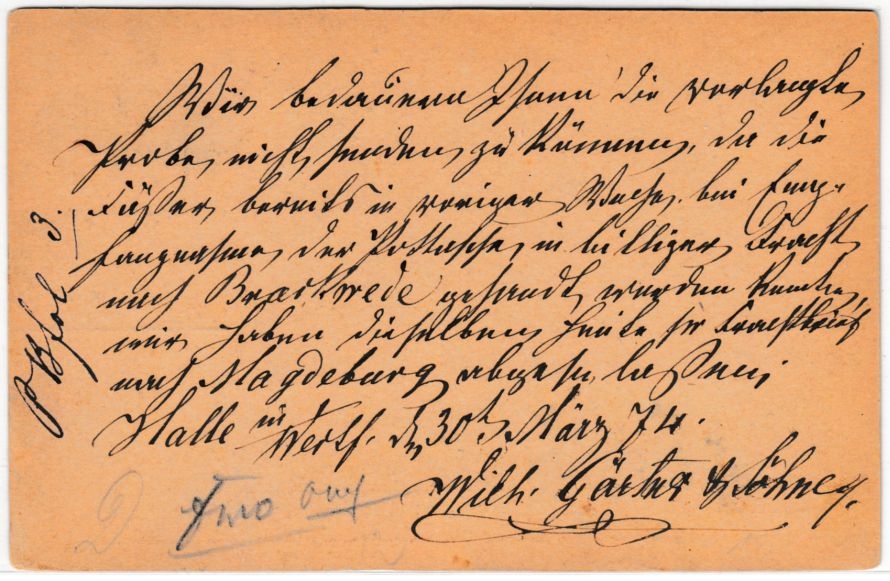 Wir bedauern Ihnen die verlangte
Probe nicht senden zu können, da die
Fässer bereits in voriger Woche bei Emp-
fangnahme der Pottasche in billiger Fracht
nach Brackwede gesandt werden konnten,
wir haben dieselben heute pr Frachtbrief
nach Magdeburg abgehn lassen.
Halle in Westf. d. 30t März 74.
Wilh. Gärtner & Söhne